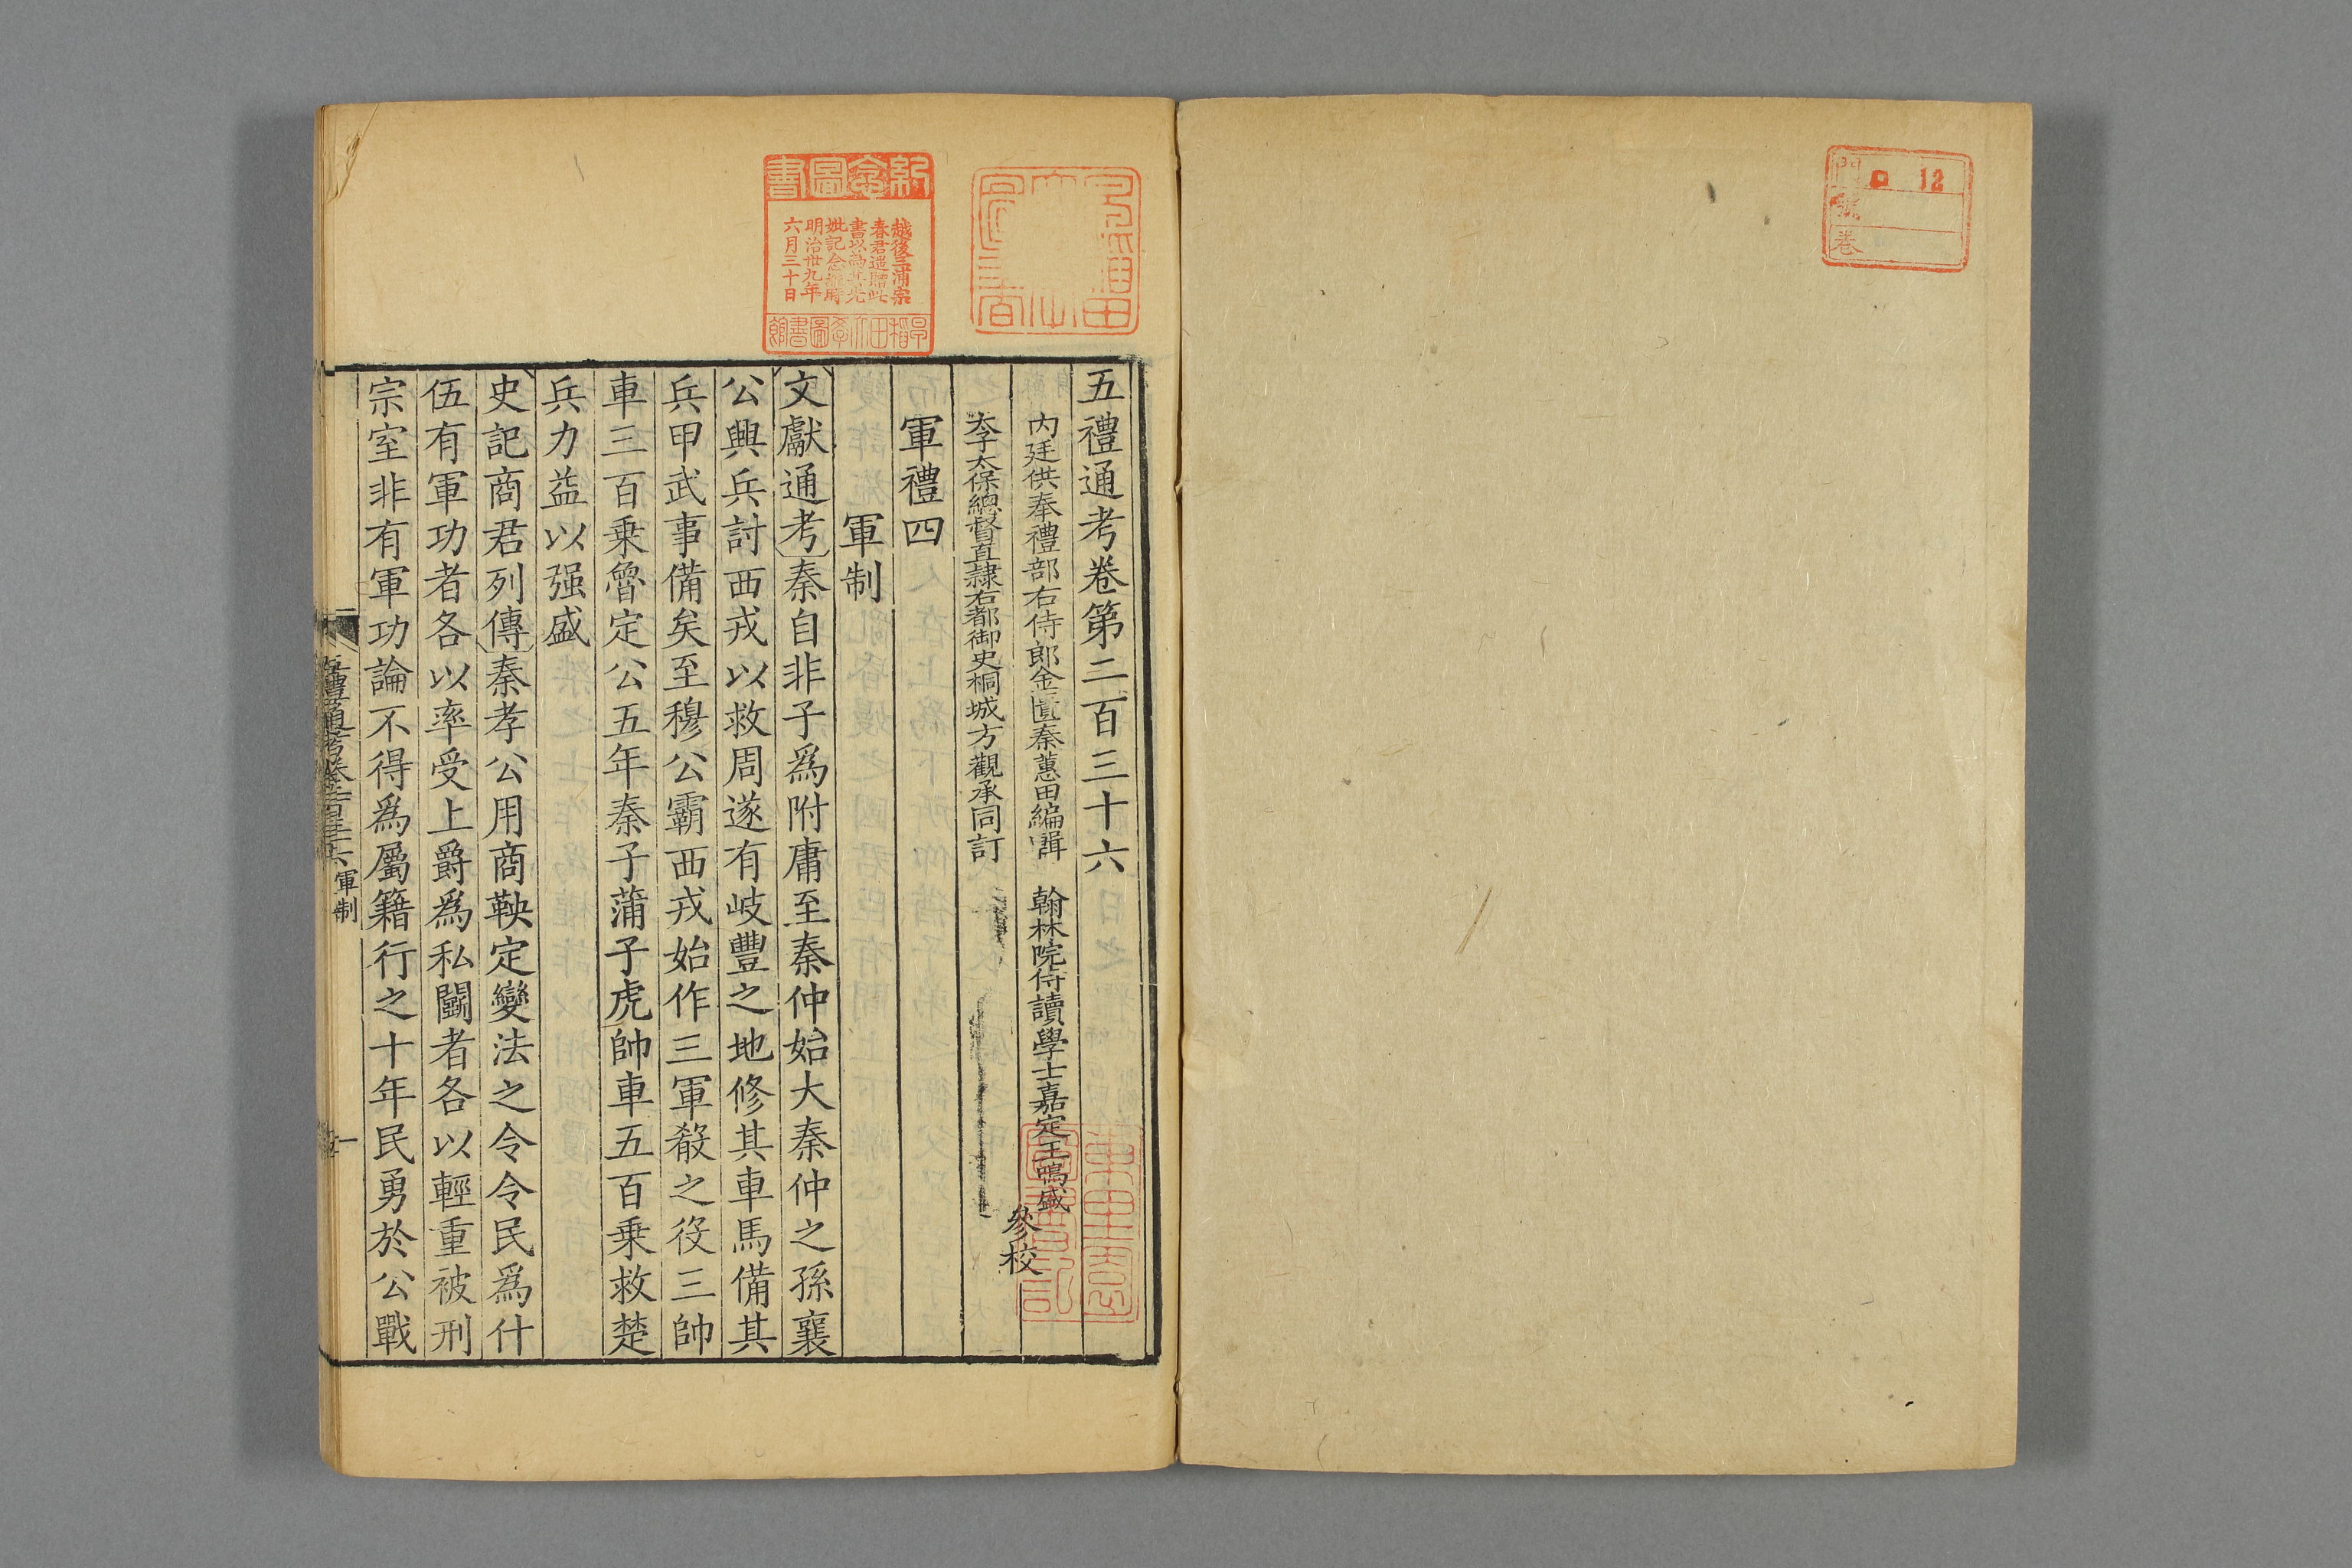 門 12
號
卷
五禮通考卷第二百三十六
內廷供奉禮部右侍郎金匱秦蕙田編輯 翰林院侍讀學士嘉定王鳴盛
參校
太子太保總督直隸右都御史桐城方觀承同訂
軍禮四
軍制
文獻通考秦自非子爲附庸至秦仲始大秦仲之孫襄
公興兵討西戎以救周遂有岐豐之地修其車馬備其
兵甲武事備矣至穆公霸西戎始作三軍殽之役三帥
車三百乗魯定公五年秦子蒲子虎帥車五百乗救楚
兵力益以强盛
史記商君列傳秦孝公用商鞅定變法之令令民爲什
伍有軍功者各以率受上爵爲私鬭者各以輕重被刑
宗室非有軍功論不得爲屬籍行之十年民勇於公戰
五禮通考卷二百三十六 軍制 一
紀念圖書
越後三浦宗
春君遥贈此
書以為其先
妣記念維時
明治卅九年
六月三十日
早稻田大學圖書館